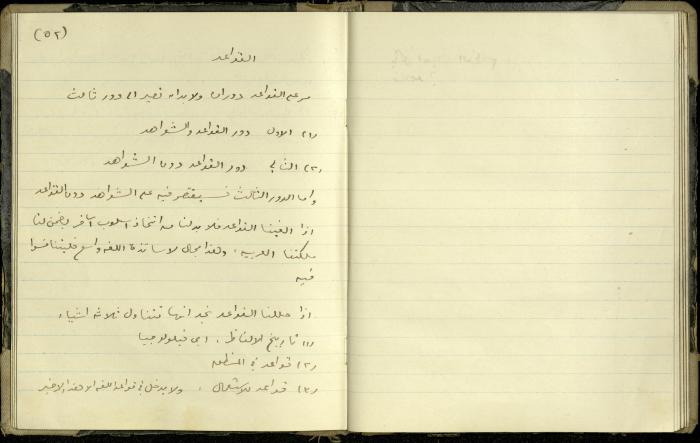 (٥٢)
القواعد
مر على القواعد دوران ولا بد ان تصير الى دور ثالث
(١) الاول دور القواعد والشواهد
(٢) الثاني دور القواعد دون الشواهد
واما الدور الثالث فسيقتصر فيه على الشواهد دون القواعد
اذا الغينا القواعد فلا بد لنا من اتخاذ اسلوب آخر يضمن لنا
ملكتنا العربية، وهذا مجال لاساتذة اللغة واسع فليتنافسوا
فيه
اذا حللنا القواعد نجد انها تتناول ثلاثة اشياء
(١) تاريخ الالفاظ، اي فيلولوجيا
(٢) قواعد في المنطق
(٣) قواعد للاستعمال، ولا يدخل في قواعد اللغة الا هذا الاخير